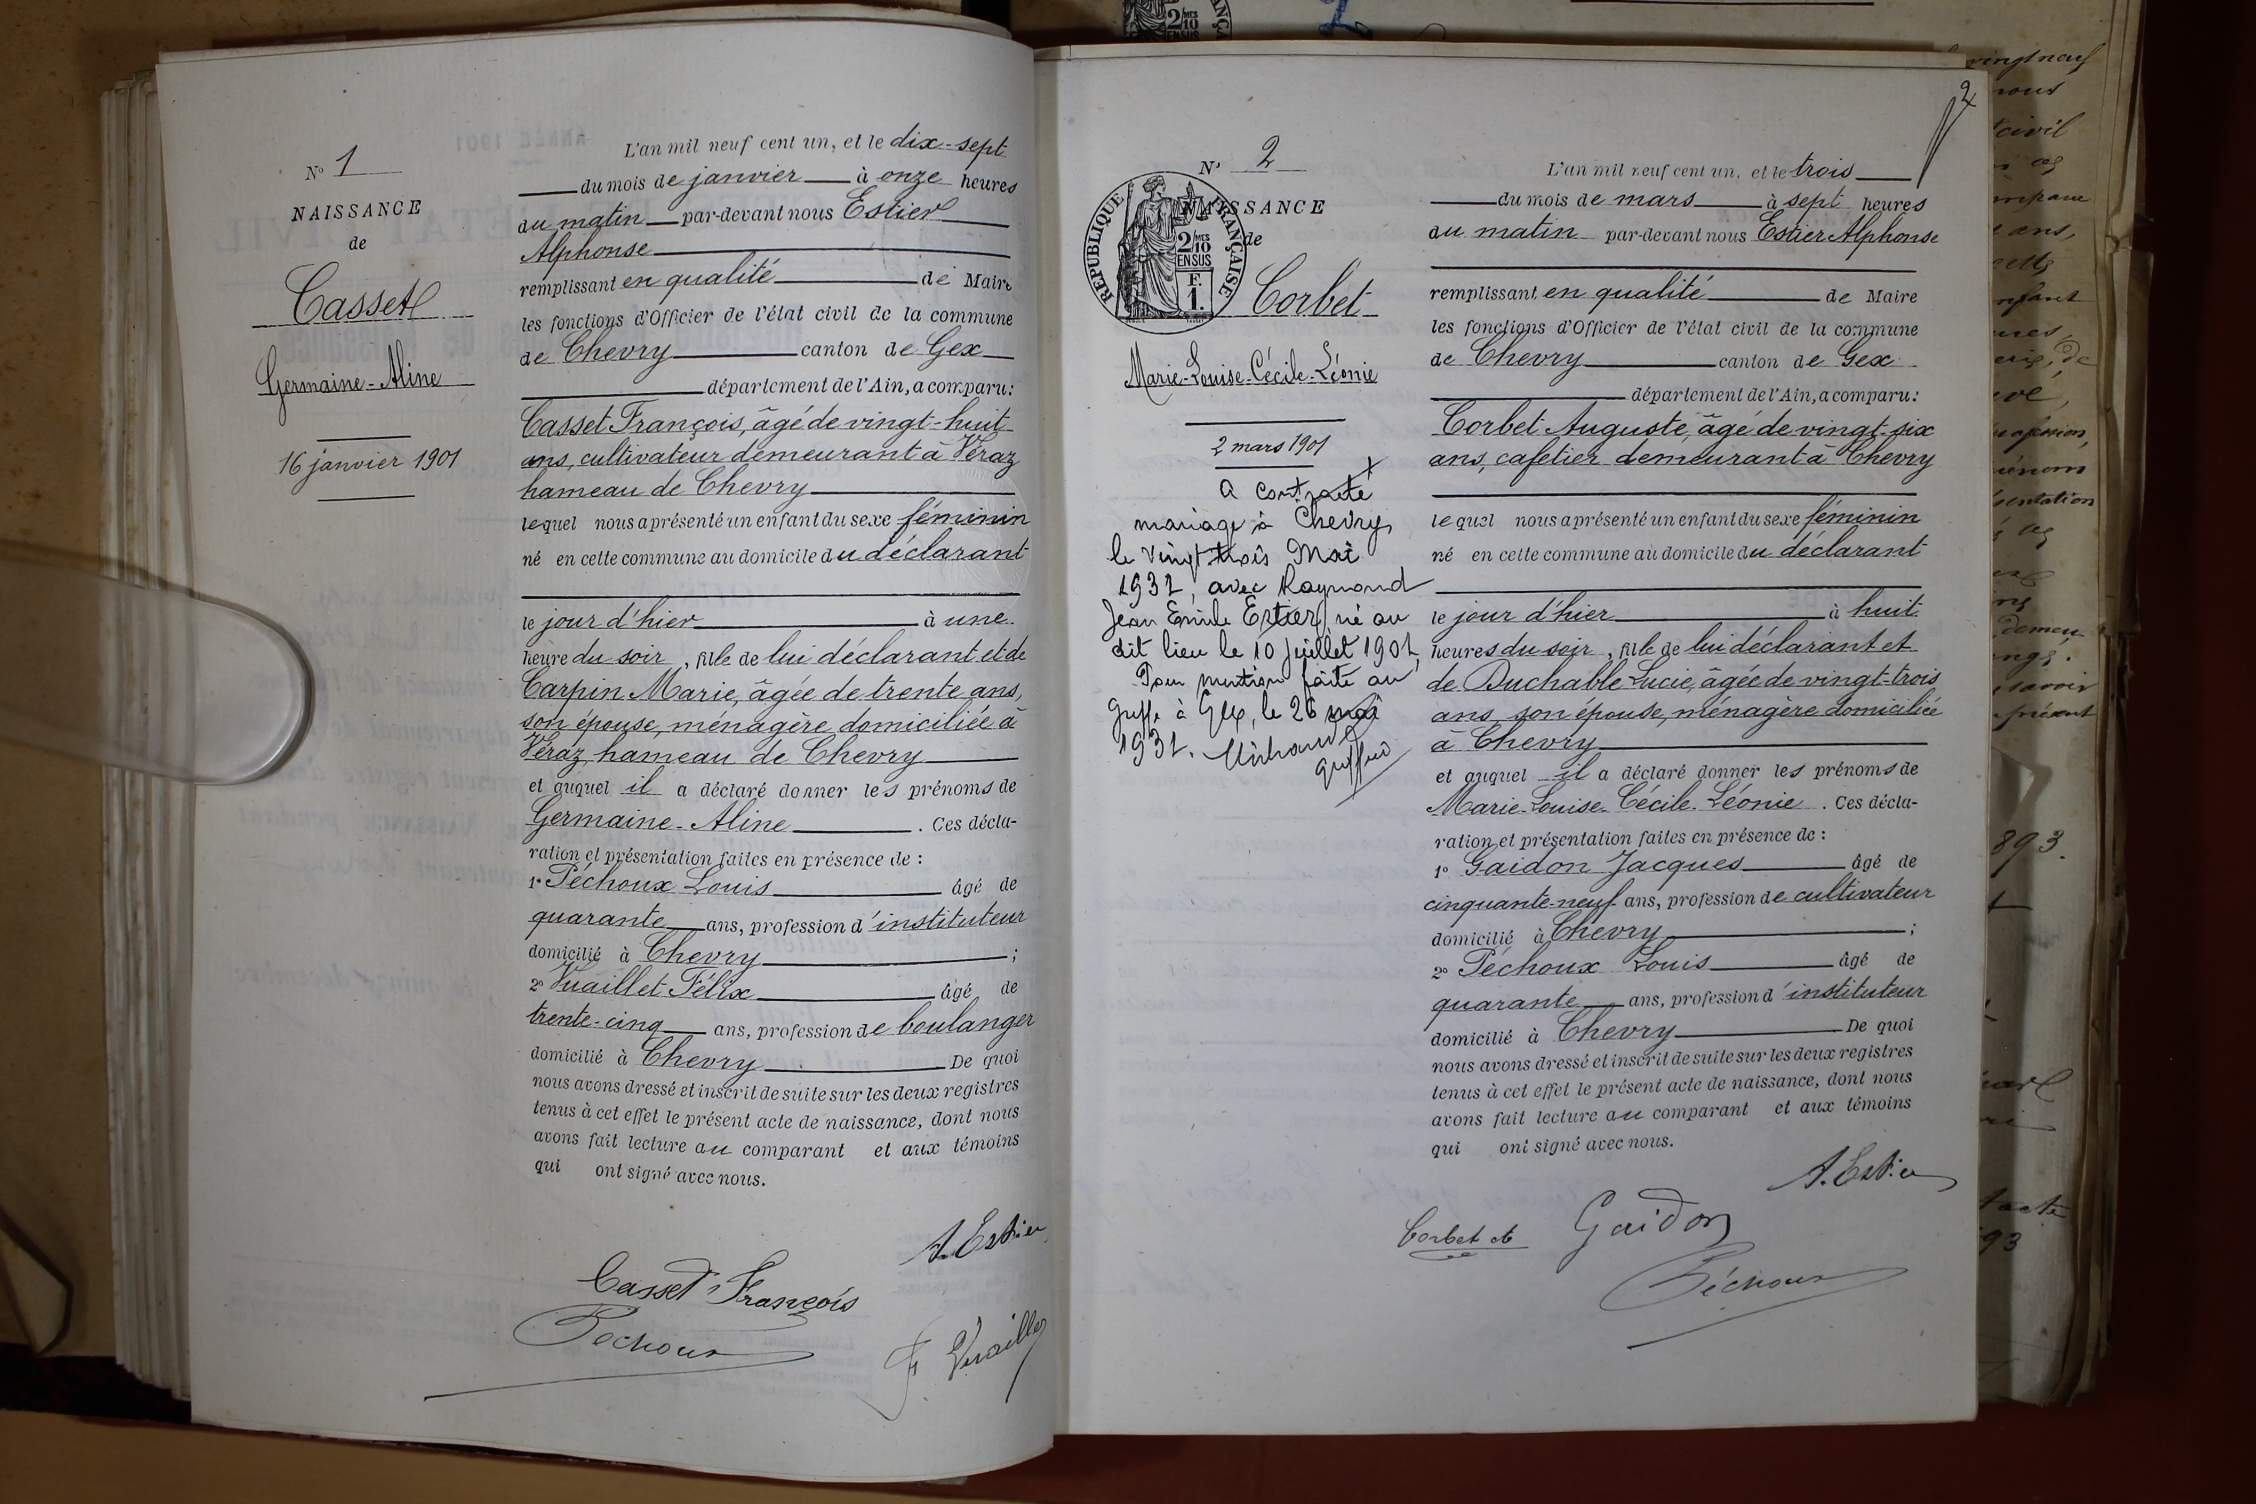 N° 1
NAISSANCE
de
Casset
Germaine-Aline
16 janvier 1901
L'an mil neuf cent un, et le dix-sept
du mois de janvier à onze heures
du matin par-devant nous Estier
Alphonse
remplissant en qualité de Maire
les fonctions d'Officier de l'état civil de la commune
de Chevry canton de Gex
département de l'Ain, a comparu:
Casset François, âgé de vingt-huit
ans, cultivateur demeurant à Véraz
hameau de Chevry
lequel nous a présenté un enfant du sexe féminin
né en cette commune au domicile du déclarant
le jour d'hier à une
heure du soir, fille de lui déclarant et de
Carpin Marie, âgée de trente ans,
son épouse, ménagère domiciliée à
Véraz hameau de Chevry
et auquel il a déclaré donner les prénoms de
Germaine-Aline. Ces décla-
ration et présentation faites en présence de :
1° Péchoux Louis âgé de
quarante ans, profession d'instituteur
domicilié à Chevry ;
2° Vuaillet Félix âgé de
trente-cinq ans, profession de boulanger
domicilié à Chevry De quoi
nous avons dressé et inscrit de suite sur les deux registres
tenus à cet effet le présent acte de naissance, dont nous
avons fait lecture au comparant et aux témoins
qui ont signé avec nous.
A. Estier
Casset François
Péchoux
F. Vuaillet
2
N° 2
NAISSANCE
de
RÉPUBLIQUE FRANÇAISE
2/10 MES
EN SUS
F.
1.
Corbet
Marie-Louise-Cécile-Léonie
2 mars 1901
A contracté
mariage à Chevry,
le vingt trois Mai
1931, avec Raymond
Jean Emile Estier, né au
dit lieu le 10 juillet 1901,
Pour mention faite au
greffe à Gex, le 26 mai
1931.
greffier
L'an mil neuf cent un, et le trois
du mois de mars à sept heures
du matin par-devant nous Estier Alphonse
remplissant en qualité de Maire
les fonctions d'Officier de l'état civil de la commune
de Chevry canton de Gex
département de l'Ain, a comparu:
Corbet Auguste, âgé de vingt-six
ans, cafetier demeurant à Chevry
lequel nous a présenté un enfant du sexe féminin
né en cette commune au domicile du déclarant
le jour d'hier à huit
heures du soir, fille de lui déclarant et
de Duchable Lucie, âgée de vingt-trois
ans, son épouse, ménagère domiciliée
à Chevry
et auquel il a déclaré donner les prénoms de
Marie-Louise-Cécile-Léonie. Ces décla-
ration et présentation faites en présence de :
1° Gaidon Jacques âgé de
cinquante-neuf ans, profession de cultivateur
domicilié à Chevry ;
2° Péchoux Louis âgé de
quarante ans, profession d'instituteur
domicilié à Chevry De quoi
nous avons dressé et inscrit de suite sur les deux registres
tenus à cet effet le présent acte de naissance, dont nous
avons fait lecture au comparant et aux témoins
qui ont signé avec nous.
A. Estier
Corbet
Gaidon
Péchoux